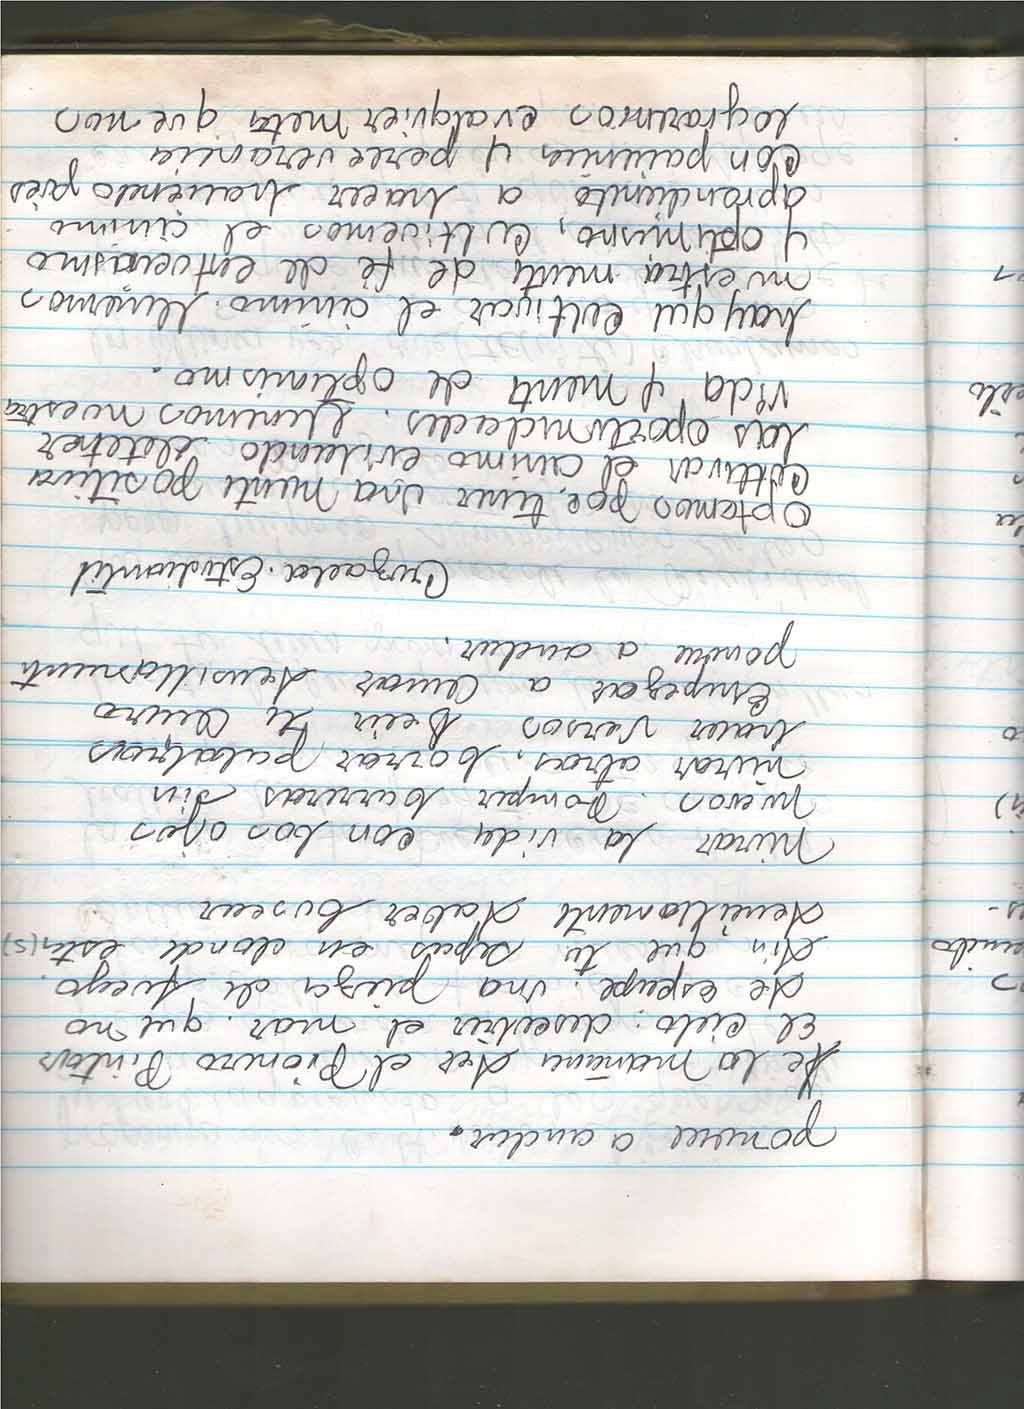 ponerse a andar.
De la mañana ser el Pionero Pintar
El cielo: descubrir el mar. que no
se escape. una pieza de fuego.
sin que tu sepas en donde esta(s)
sencillamente saber buscar
mirar la vida con los ojos
nuevos. Romper barreras sin
mirar atras, borrar palabras
hacer versos Decir te
Empezar a Amar sensillamente
ponerse a andar.
Cruzada. Estudiantil
Optamos por tener una mente positiva
cultivar el animo evitando detener
las oportunidades. Llenemos nuestra
vida y mente de optimismo.
hay que cultivar el animo. Llenemos
nuestra mente de fe de entuciasmo
y optimismo, Cultivemos el animo
aprendiendo a hacer haciendo
Con paciencia y perseverancia
lograremos cualquier meta que nos